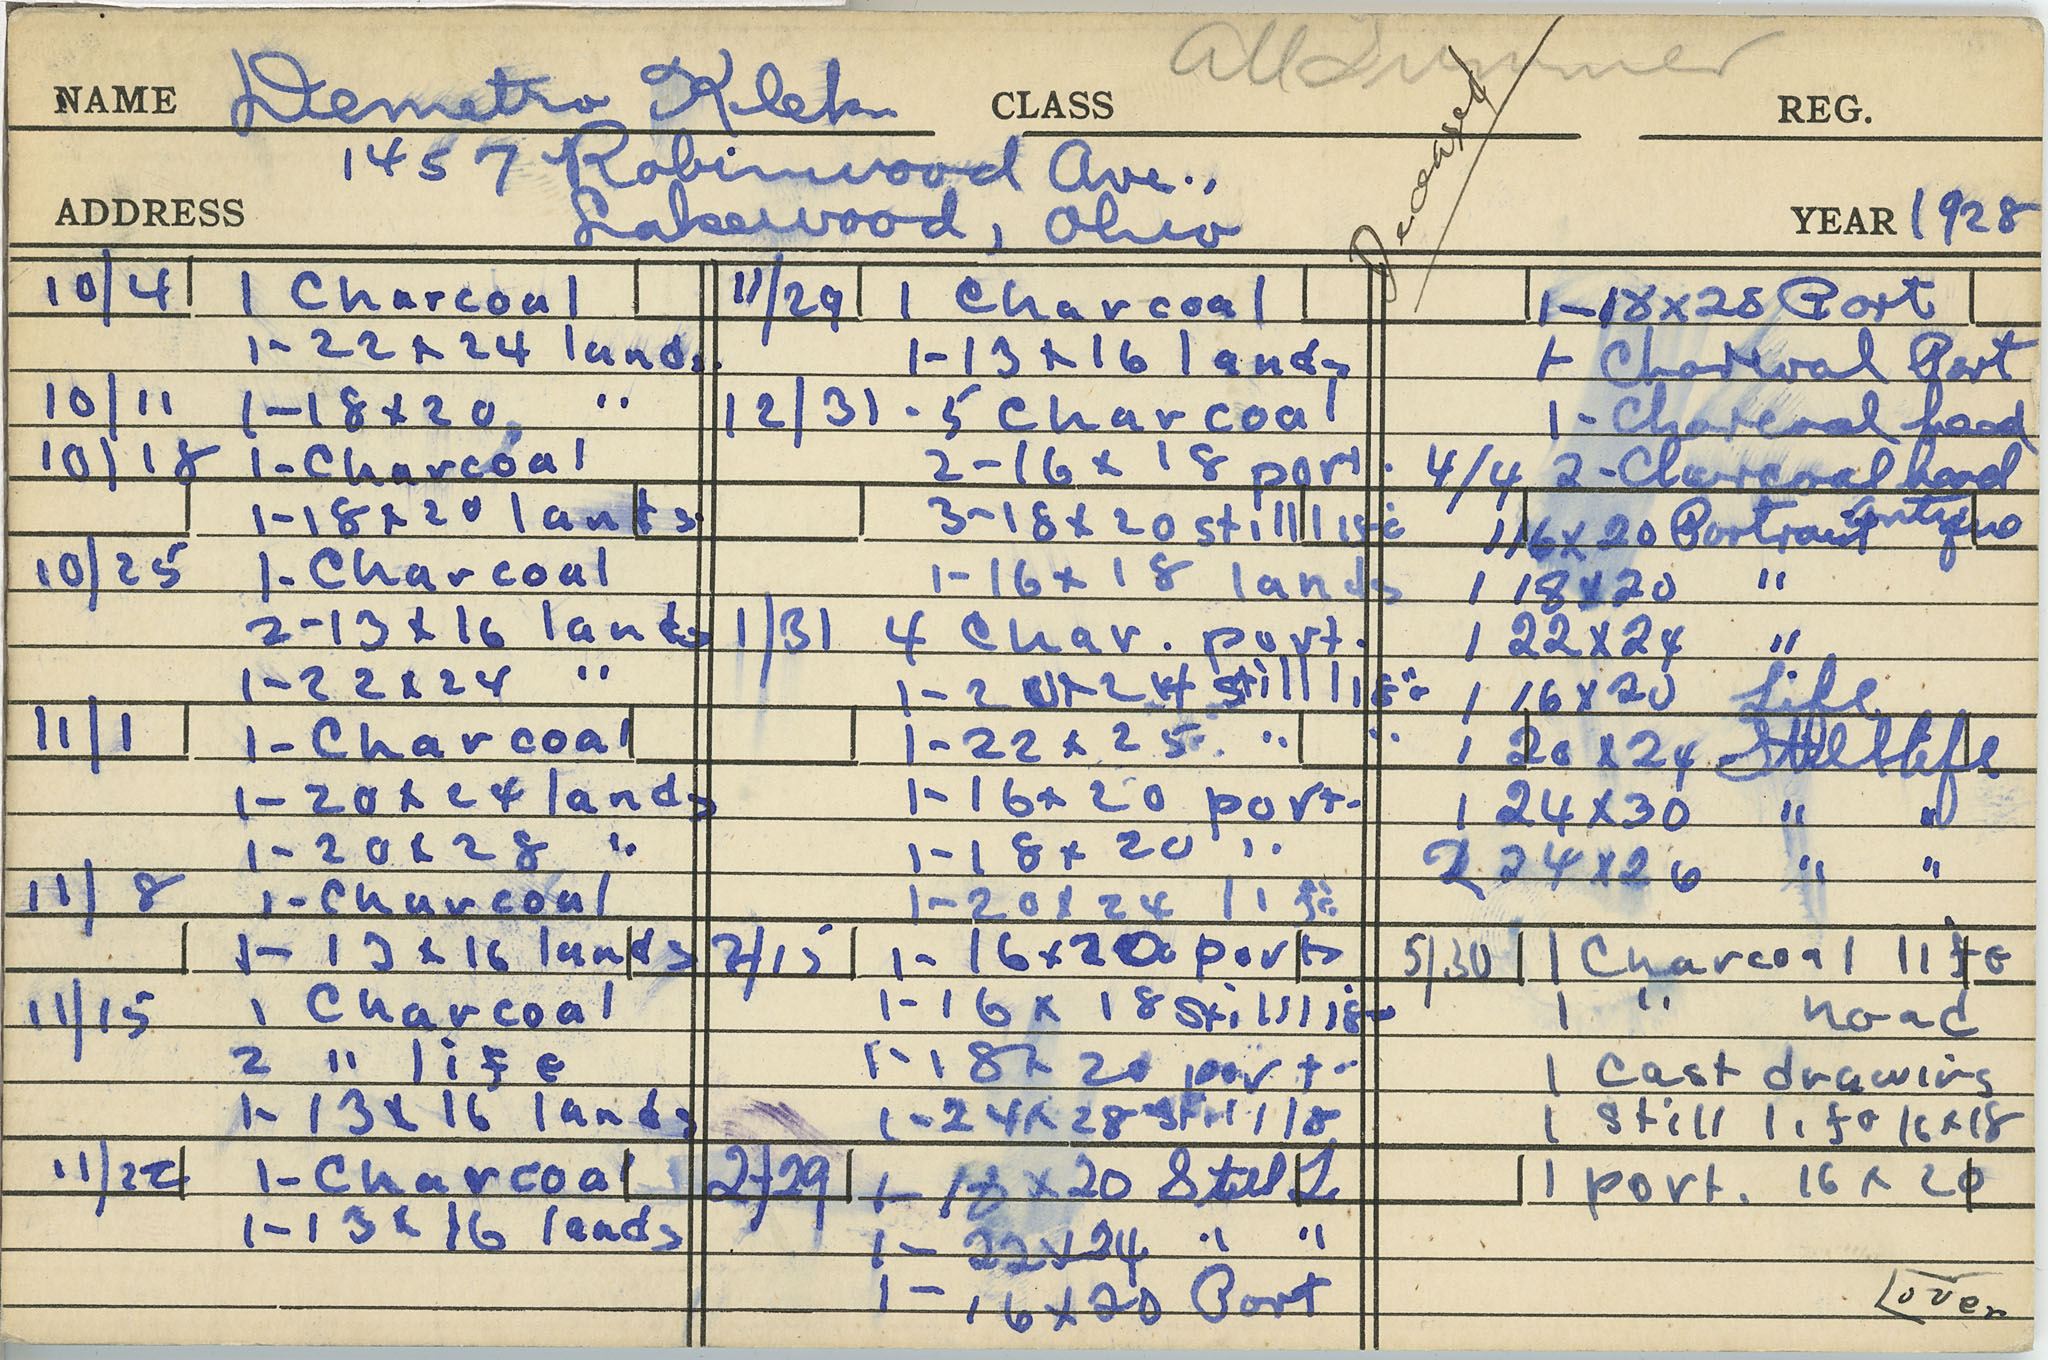 All Summer
NAME Demetro Klek CLASS REG.
1457 Robinwood Ave.,
ADDRESS Lakewood, Ohio YEAR 1928
Deceased
10/4 1 Charcoal
1-22x24 lands
10/11 1-18x20 "
10/18 1-Charcoal
1-18x20 lands
10/25 1-Charcoal
2-13x16 lands
1-22x24 "
11/1 1-Charcoal
1-20x24 lands
1-20x28 "
11/8 1-Charcoal
1-13x16 lands
11/15 1 Charcoal
2 " life
1-13x16 lands
11/22 1-Charcoal
1-13x16 lands
11/29 1 Charcoal
1-13x16 lands
12/31 - 5 Charcoal
2-16x18 port.
3-18x20 still life
1-16x18 lands
1/31 4 Char. port.
1-20x24 still life
1-22x25 " "
1-16x20 port.
1-18x20 "
1-20x24 life
2/15 1-16x20 port
1-16x18 still life
1-18x20 port.
1-24x28 still life
2/29 1-18x20 Still L
1-22x24 " "
1-16x20 Port
1-18x28 Port
1-Charcoal Port
1-Charcoal head
4/4 2-Charcoal head
antique
1 16x20 Portrait
1 18x20 "
1 22x24 "
1 16x20 Life
1 20x24 Still Life
1 24x30 " "
2 24x26 " "
5/30 1 Charcoal life
1 " head
1 cast drawing
1 still life 16x18
1 port. 16x20
over